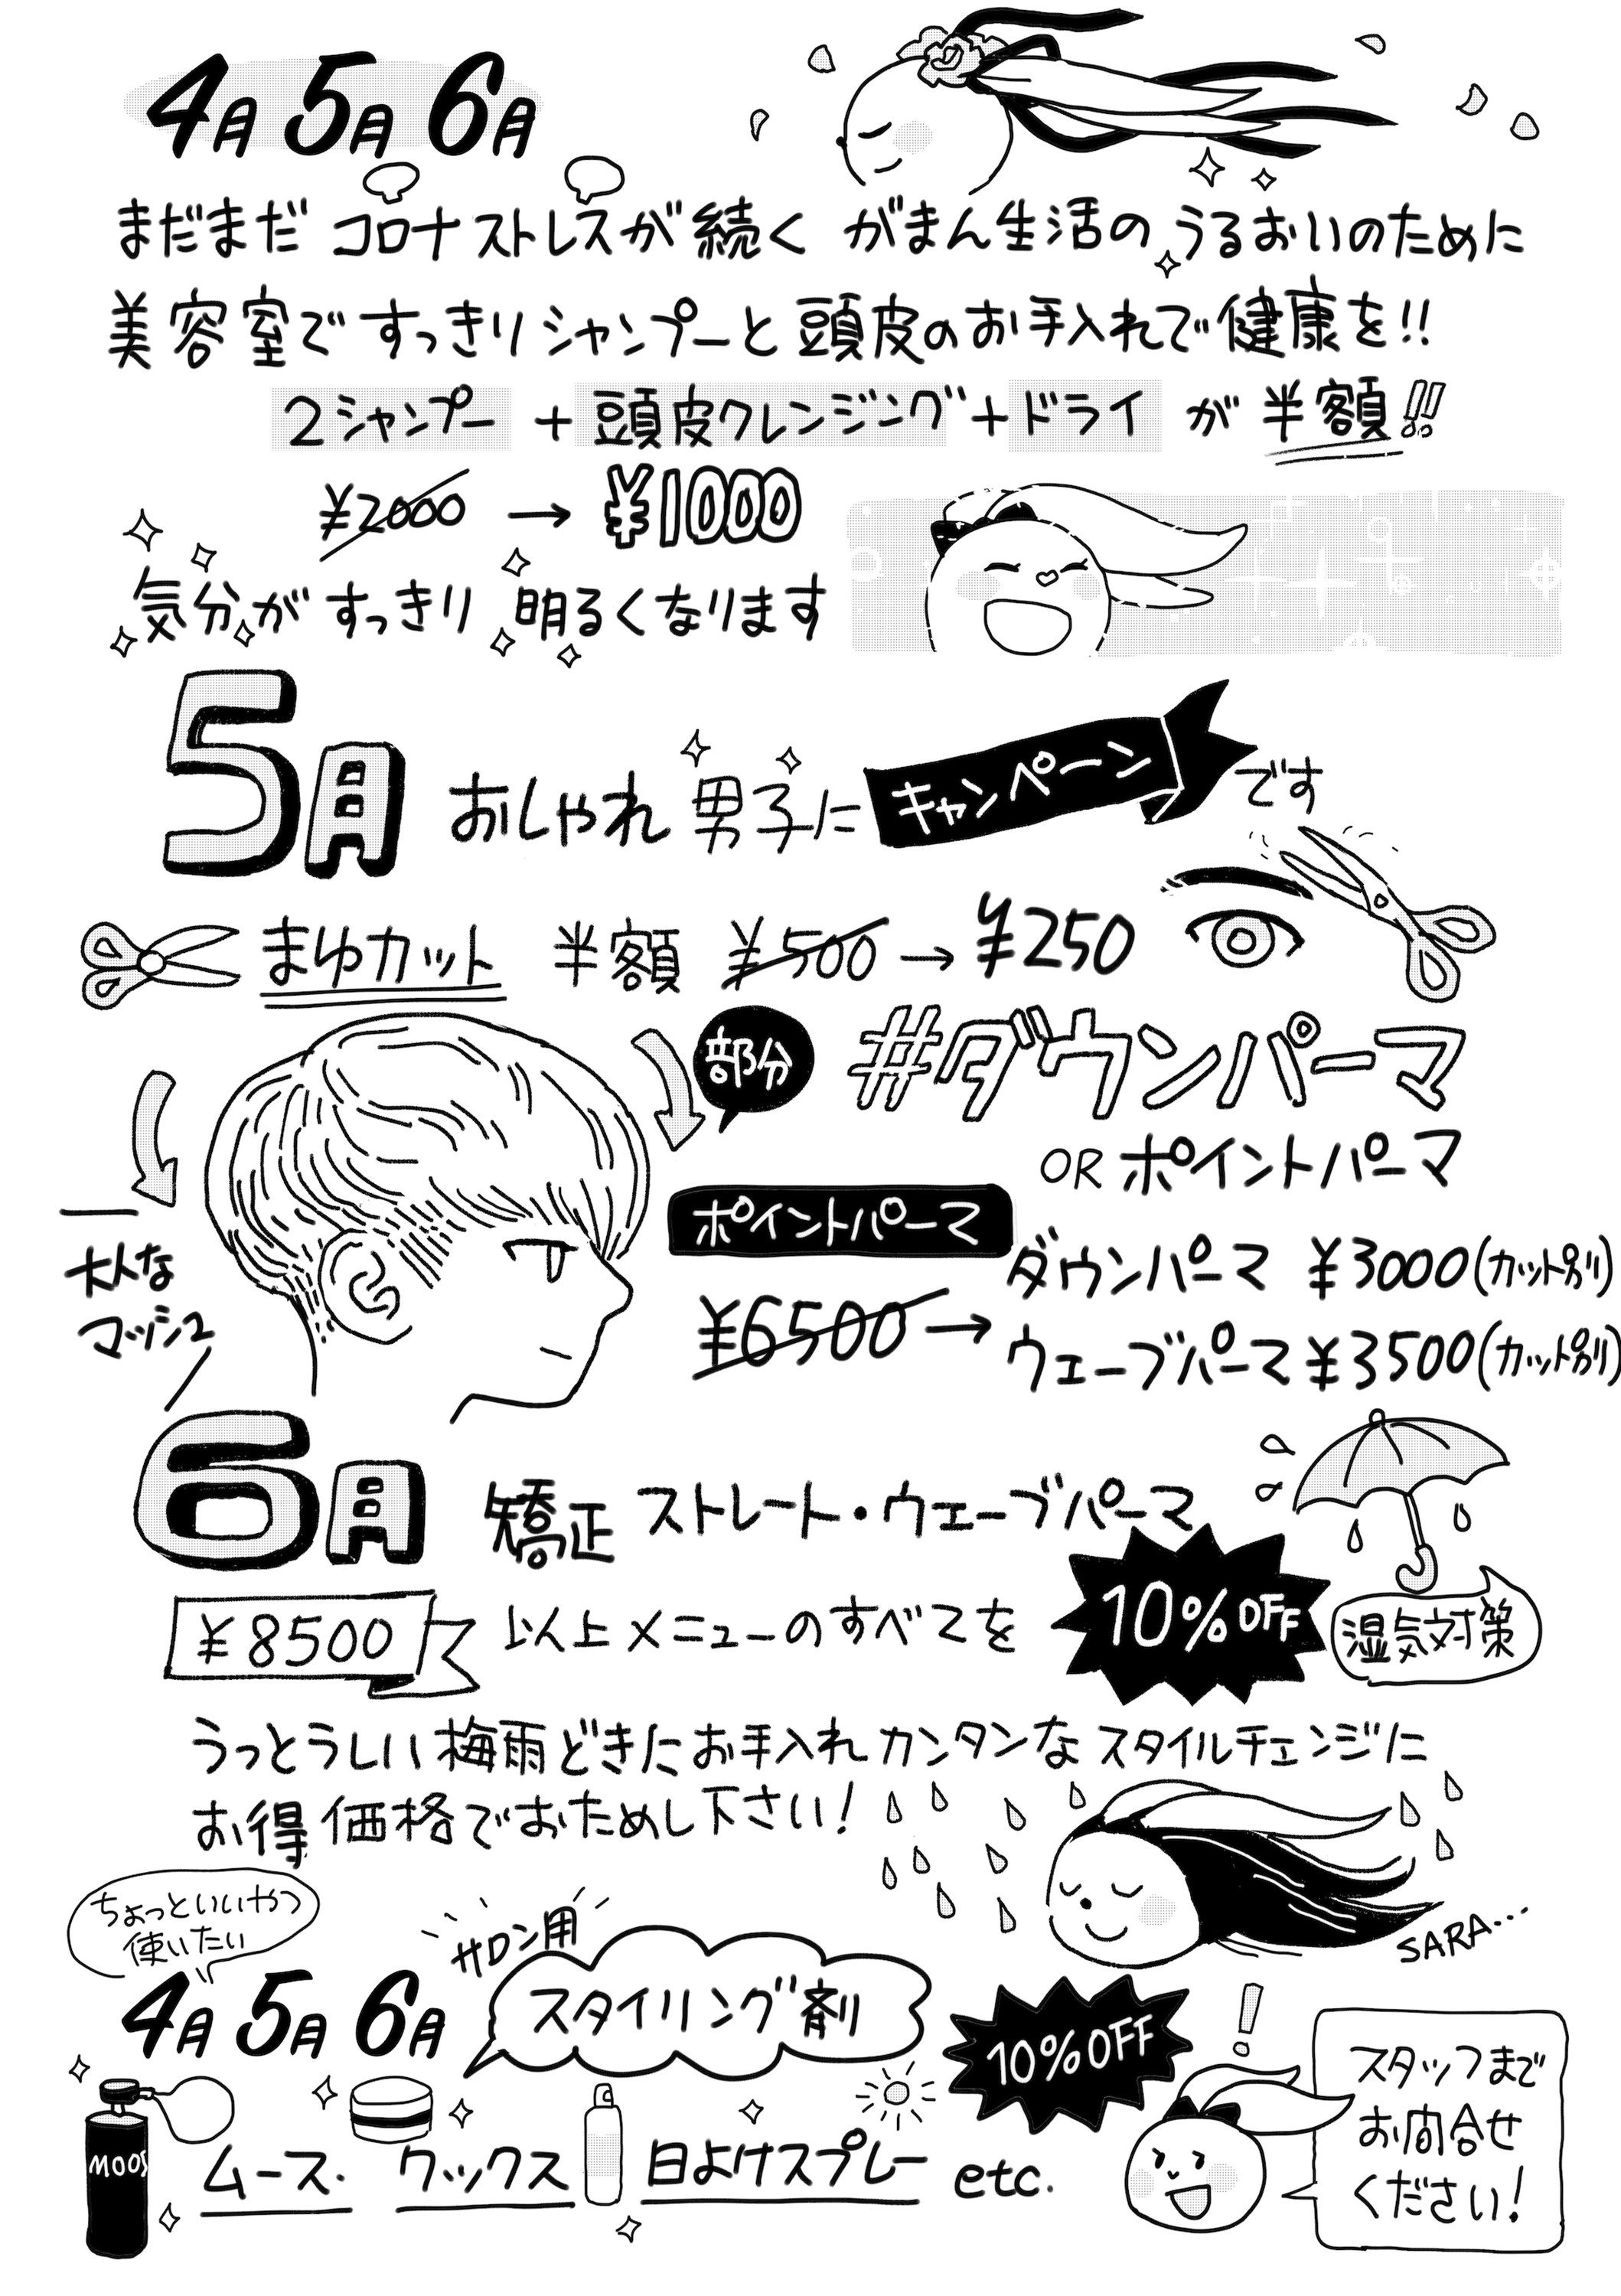 4月 5月 6月
まだまだ コロナストレスが続く がまん生活の うるおいのために
美容室で すっきりシャンプーと 頭皮のお手入れで健康を!!
2シャンプー + 頭皮クレンジング + ドライ が 半額!!
¥2000 → ¥1000
気分が すっきり 明るくなります
5月 おしゃれ 男子に キャンペーン です
まゆカット 半額 ¥500 → ¥250
部分 #ダウンパーマ
OR ポイントパーマ
大人な
マッシュ
ポイントパーマ
¥6500 →
ダウンパーマ ¥3000(カット別)
ウェーブパーマ ¥3500(カット別)
6月 矯正 ストレート・ウェーブパーマ
¥8500 以上メニューのすべてを 10%OFF
湿気対策
うっとうしい梅雨どきたお手入れ カンタンな スタイルチェンジに
お得価格でおためし下さい!
SARA…
ちょっといいやつ
使いたい
4月 5月 6月 サロン用 スタイリング剤 10%OFF
!
MOOS
ムース・ ワックス 日よけスプレー etc.
スタッフまで
お問合せ
ください!